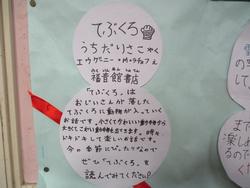 てぶくろ
うちだりさこ やく
エウゲーニー・M・ラチョフ え
ふくいんかんしょてん
福音館書店
「てぶくろ」は
おじいさんが落した
てぶくろに動物が入っていく
お話です。小さくてかわいい動物から
大きくてこわい動物も出てきます。時々
ドキドキして楽しいお話です。
今の季節にぴったりなので
ぜひ「てぶくろ」を
読んでみてください